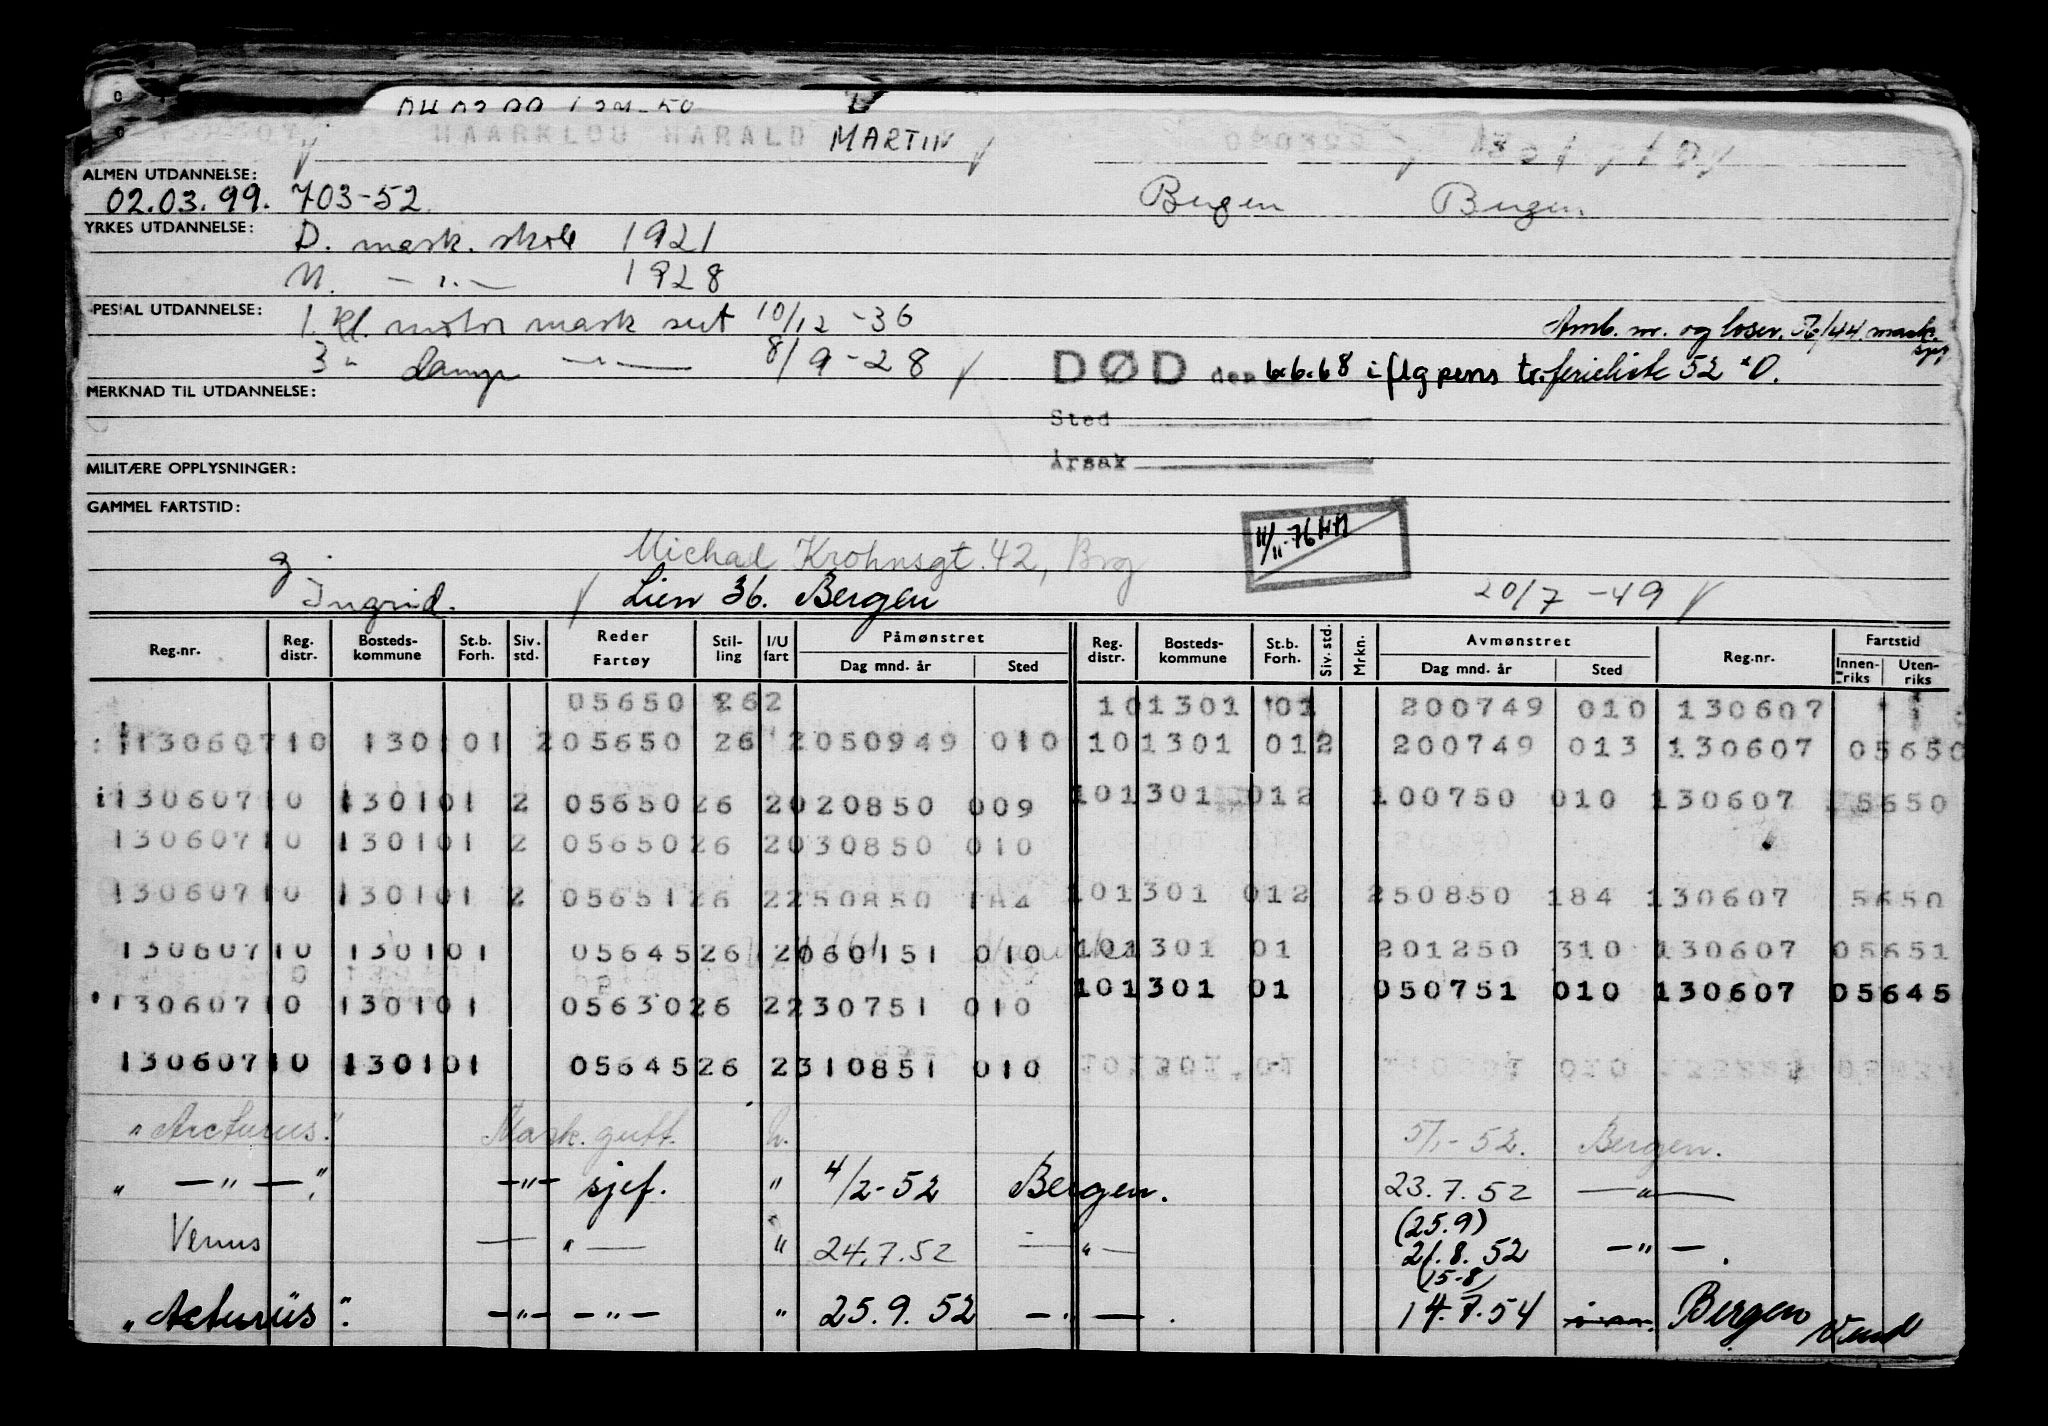 HAARKLOU HARALD MARTIN
ALMEN UTDANNELSE:
02.03.99. 703-52. Bergen Bergen
YRKES UTDANNELSE:
D. mask. skole 1921
N. — „ — 1928
SPESIAL UTDANNELSE:
1. kl. motor mask sert 10/12 -36
Amb. nr. og losev. 56/44 mask.
3 " Damp — 8/9 - 28
DØD den 6.6.68 iflg pens tr. ferieliste 52 D.
MERKNAD TIL UTDANNELSE:
Sted
Årsak
MILITÆRE OPPLYSNINGER:
GAMMEL FARTSTID:
11/11-76
g. Michael Krohnsgt. 42, Brg
Ingrid. Lien 36. Bergen 20/7 -49
Reg.nr. Reg. distr. Bosteds-kommune St.b. Forh. Siv. std. Reder Fartøy Stil-ling I/U fart Påmønstret Dag mnd. år Sted Reg. distr. Bosteds-kommune St.b. Forh. Siv. std. Mrkn. Avmønstret Dag mnd. år Sted Reg.nr. Fartstid Innen-riks Uten-riks
05650 262 101301 01 200749 010 130607
13060710 130101 205650 26 2050949 010 101301 012 200749 013 130607 05650
13060710 130101 2 0565026 2020850 009 101301 012 100750 010 130607 5650
13060710 130101 2 0565026 2030850 010
13060710 130101 2 0565126 2250850 184 101301 012 250850 184 130607 5650
13060710 130101 0564526 2060151 010 101301 01 201250 310 130607 05651
13060710 130101 0563026 2230751 010 101301 01 050751 010 130607 05645
13060710 130101 0564526 2310851 010 101301 01
"Arcturus." Mask. gutt. h. 5/1-52. Bergen.
" — " — " — " — sjef. " 4/2-52 Bergen. 23.7.52 — " —
Venus — " — " 24.7.52 — " — (25.9) 21.8.52 — " — .
(15-8)
"Acturus". — " — — " — " 25.9.52 — " — . 14.7.54 Bergen Vend